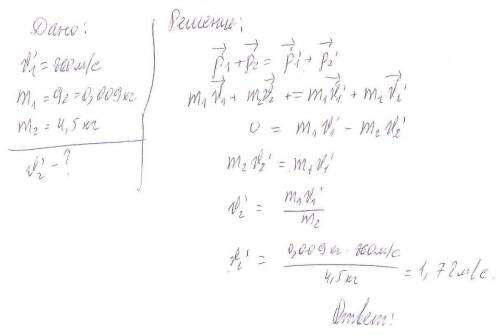 Дано:
v₁' = 860 м/с
m₁ = 9г = 0,009 кг
m₂ = 4,5 кг
v₂' - ?
Решение:
p₁ + p₂ = p₁' + p₂'
m₁v₁ + m₂v₂ += m₁v₁' + m₂v₂'
0 = m₁v₁' - m₂v₂'
m₂v₂' = m₁v₁'
v₂' = m₁v₁' / m₂
v₂' = 0,009 кг · 860 м/с / 4,5 кг = 1,72 м/с.
Ответ: